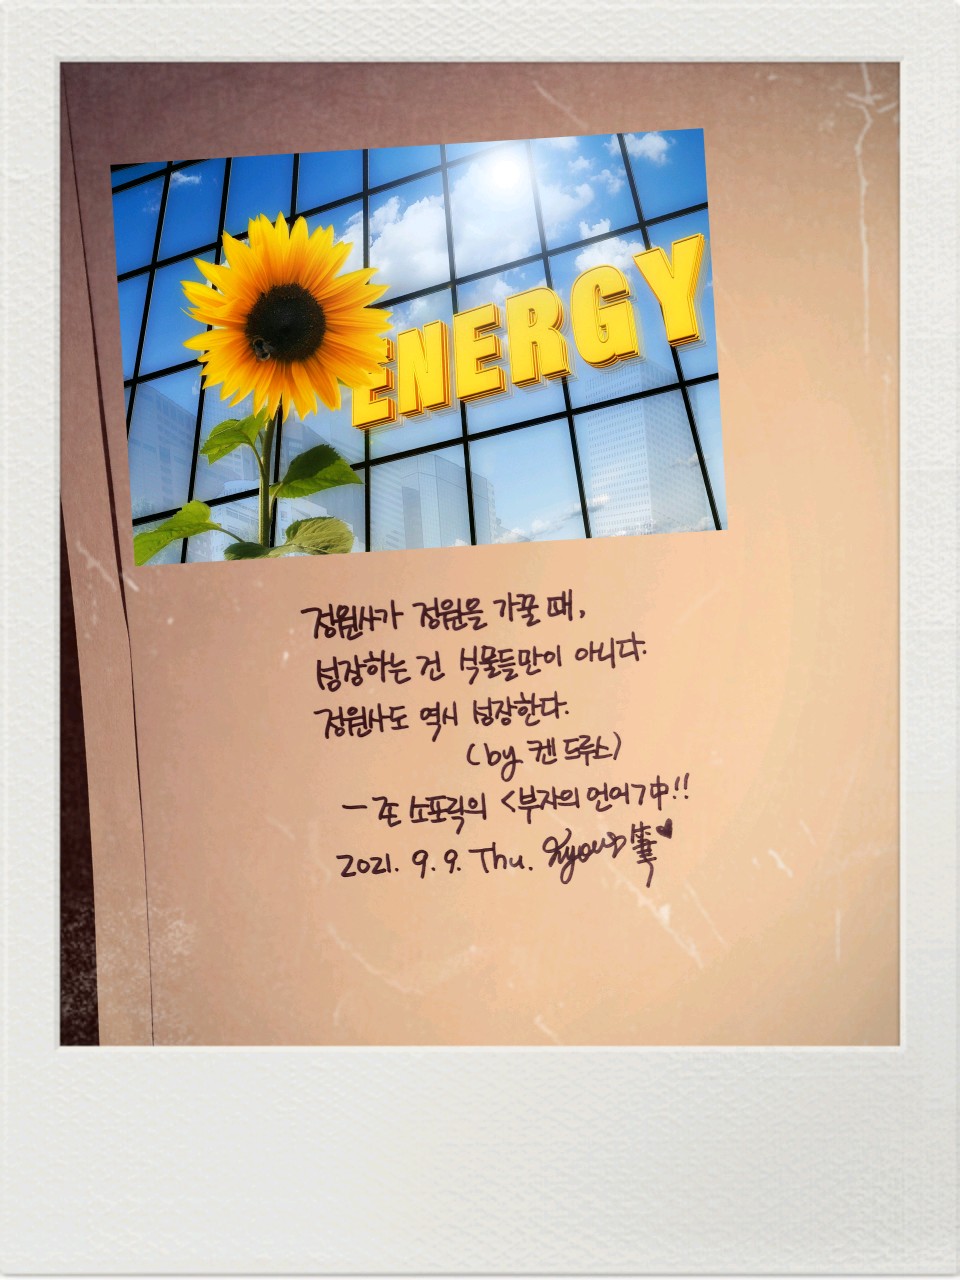 ENERGY
정원사가 정원을 가꿀 때,
성장하는 건 식물들만이 아니다.
정원사도 역시 성장한다.
(by 켄 드루스)
- 존 소포릭의 <부자의 언어> 中!!
2021. 9. 9. Thu. 筆